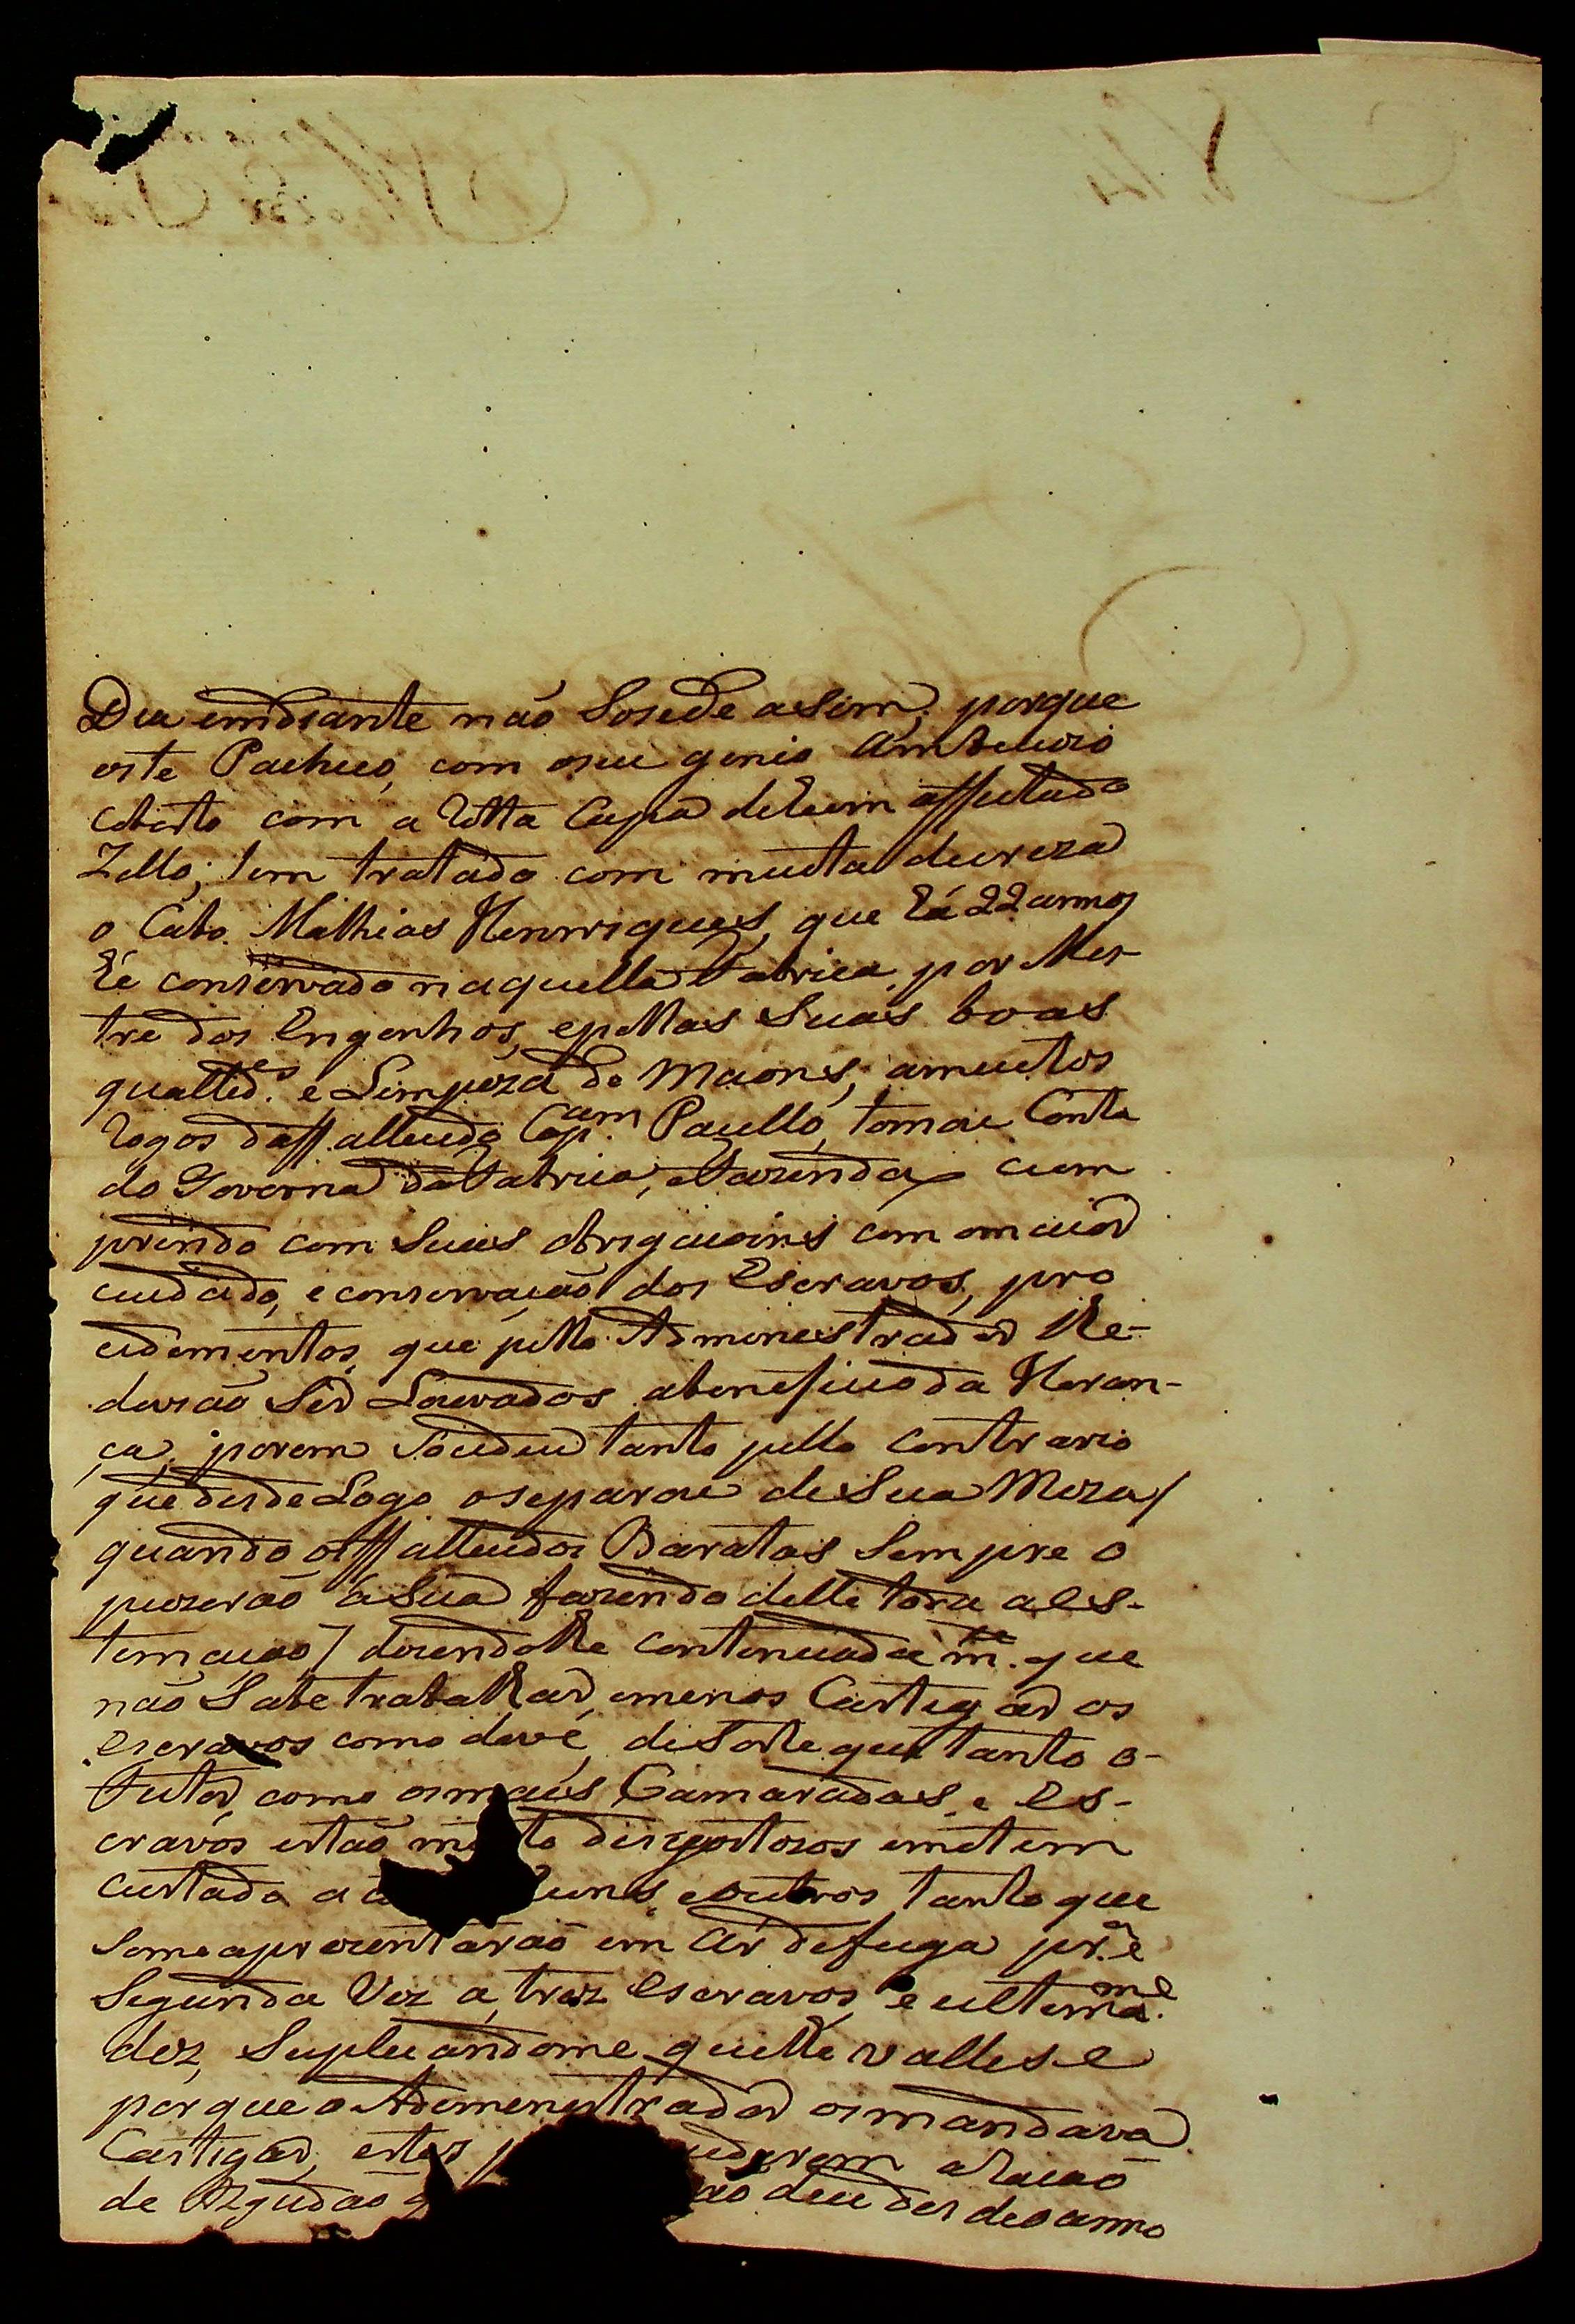 Dia emdiante não Sosede asim; porque
este Pacheco, com oseu genio Ambeciozo
cuberto com a Rotta Capa dehum affectado
Zello; tem tratado com muita dureza
o Cabo Mathias Henrriques, que há 22 annos
hé conservado naquella Fabrica, por Mes-
tre dos Engenhos, epellas Suas boas
quallid.es e Limpeza de Maons; amuitos
Rogos doffallecido Cap.am Paullo, tomou Conta
do Governo da Fabrica, eFazenda cum
prindo com Suas obrigaçoins com omaior
cuidado, e conservação dos Escravos, pro
cidimentos, que pello Administrador lhe-
devião Ser Louvados abenefício da Heran-
ça; porem Soçedeu tanto pello contrario
que desde Logo oseparou de Sua Meza/
quando osffallecidos Baratas Sempre o
puzerão á Sua fazendo delle toda a Es-
timação/ dizendolhe continuadam.te que
não Sabe trabalhar, emenos Castigar os
escravos como deve, de Sorte que tanto o-
Feitor, como osmais Camaradas, e Es-
cravos estão m to disgostozos emetem
custado a a huns, eoutros tanto que
Semeaprezentarão em Ar de fuga pr.a e
Segunda Vez a, trez Escravos, e ultimam.e
dez, Suplicandome quelhe vallese
porque o Administrador osmandava
Castigar, estes p derem aRação
de Algudão q ão deu des deoanno